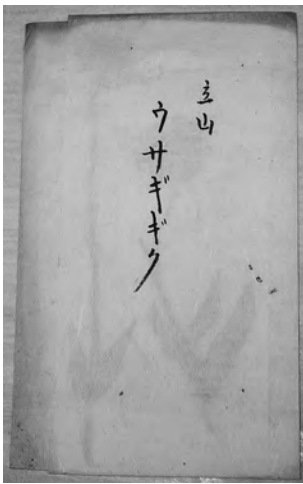 立山
ウサギギク